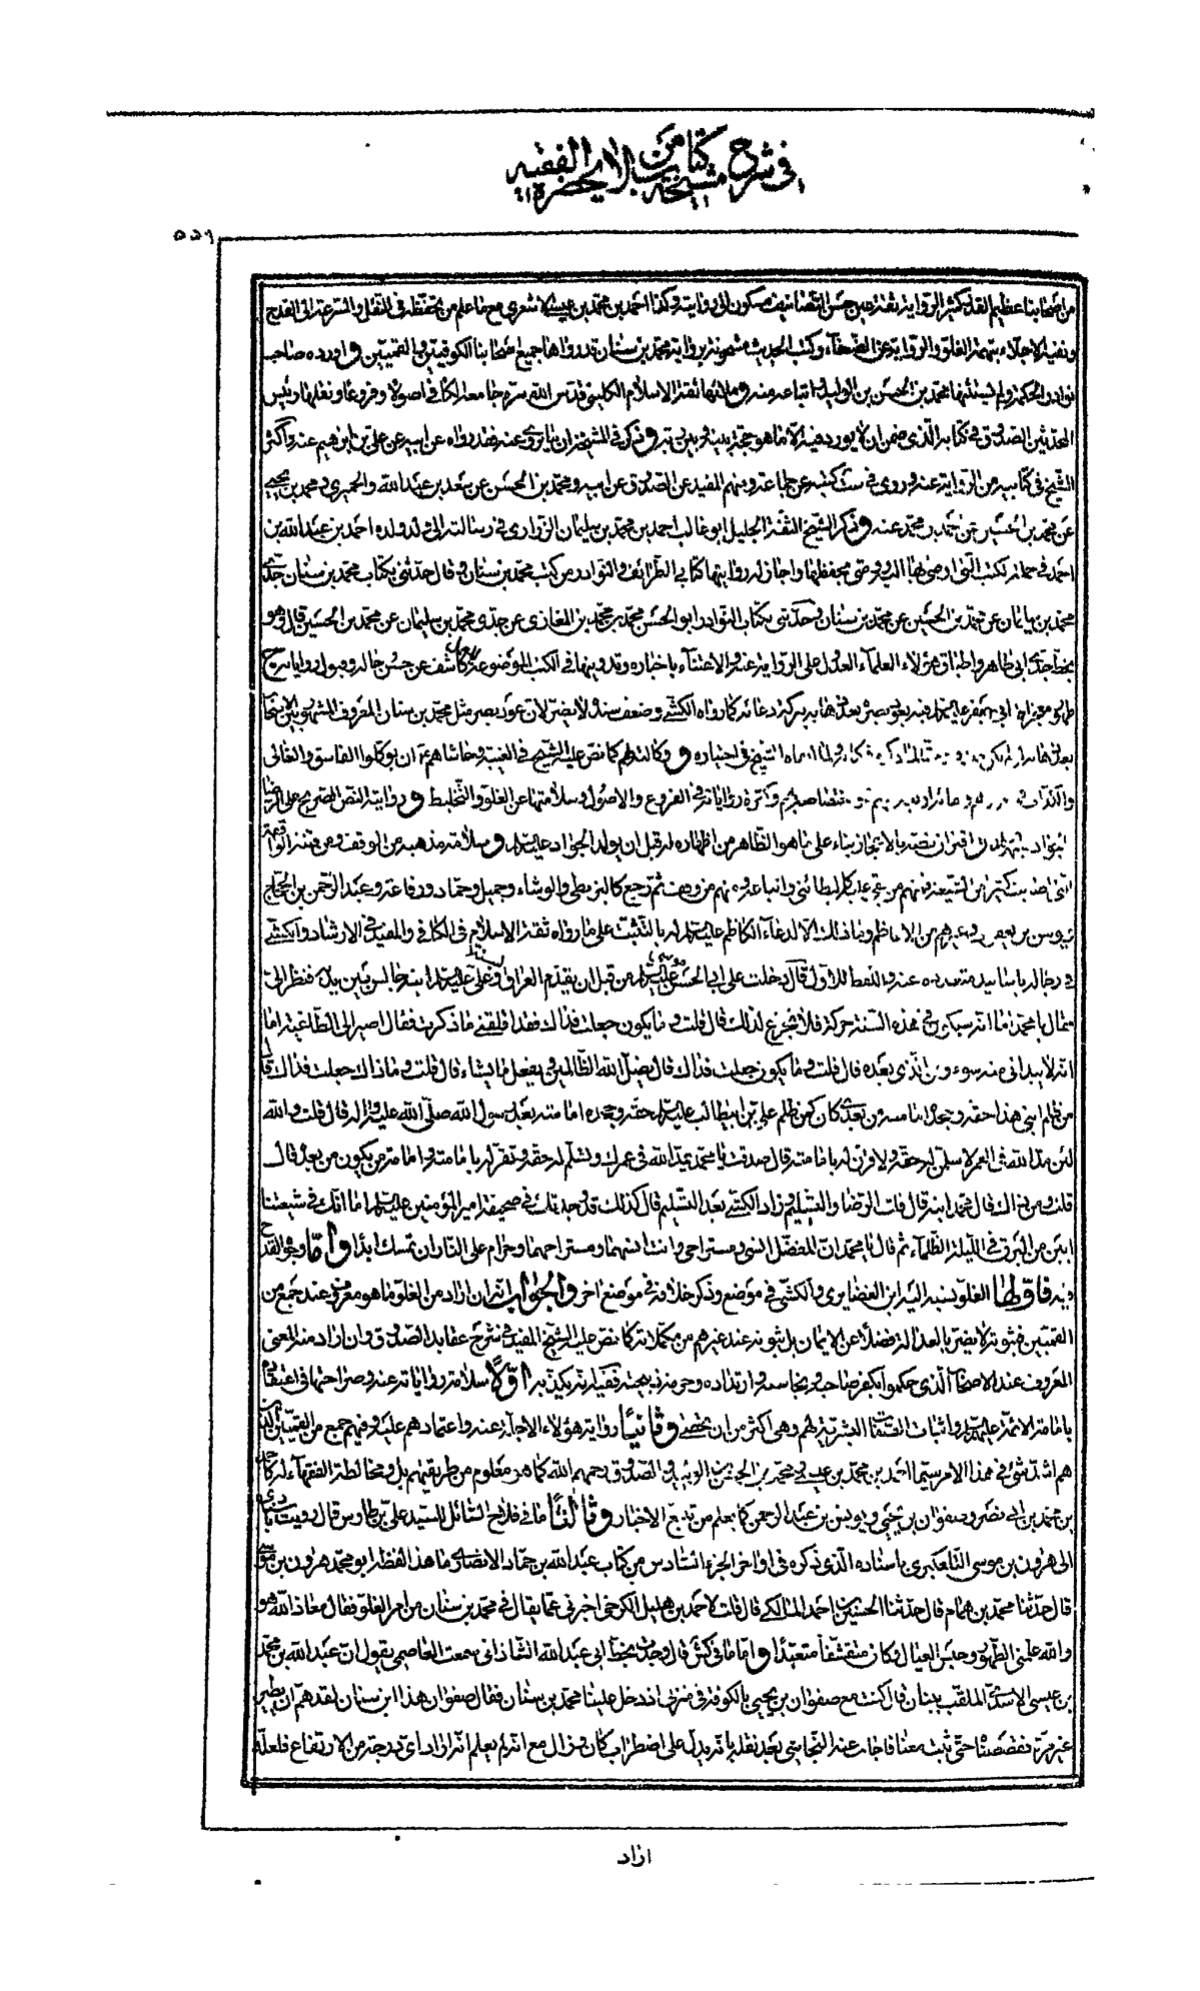 في شرح مشيخة كتاب من لا يحضره الفقيه
٥٥٩
من اصحابنا عظيم القدر كثير الرواية ثقة عين حسن التصانيف مسكون الى روايته وكذا احمد بن محمد بن عيسى الاشعري مع ما علم من تحفظه في النقل والسرعة الى القدح
ونفيه الاجلاء بتهمة الغلو والرواية عن الضعفاء وكتب الحديث مشحونة برواية محمد بن سنان قد رواها جميع اصحابنا الكوفيين والقميين و اورده صاحب
نوادر الحكمة ولم يستثنها محمد بن الحسن بن الوليد اتباعه منه و ملأ منها ثقة الاسلام الكليني قدس الله سره جامعه الكافي اصولا وفروعا ونقلها رئيس
المحدثين الصدوق في كتابه الذي ضمن ان لا يورد فيه الا ما هو حجة بينه وبين ربه و ذكر في المشيخة ان ما يرويه عنه فقد رواه عن ابيه عن علي بن ابرهيم عنه واكثر
الشيخ في كتابيه من الرواية عنه وروى في ست كتبه عن جماعة ومنهم المفيد عن الصدوق عن ابيه ومحمد بن الحسن عن سعد بن عبد الله والحميري ومحمد بن يحيى
عن محمد بن الحسين عن محمد عنه و ذكر الشيخ الثقة الجليل ابو غالب احمد بن محمد بن سليمان الزراري في رسالته الى ولد ولده احمد بن عبد الله بن
احمد في جملة كتب التي اوصى بها اليه ووصى بحفظها واجاز له روايتها كتابي الطرائف والنوادر من كتب محمد بن سنان وقال حدثني بكتاب محمد بن سنان جدي
محمد بن سليمان عن محمد بن الحسين عن محمد بن سنان وحدثني بكتاب النوادر ابو الحسن محمد بن محمد بن المغازي عن جدي محمد بن سليمان عن محمد بن الحسين قال وهو
بخط جدي ابي طاهر واطباق هؤلاء العلماء العدول على الرواية عنه والاعتناء باخباره وتدوينها في الكتب الموضوعة للعمل كاشف عن حسن حاله وقبول رواياته و ح
ظهور معجزات ابي جعفر عليه السلم فيه بعود بصره بعد ذهابه ببركة دعائه كما رواه الكشي وضعف سنده لا يضر لان عود بصر مثل محمد بن سنان المعروف المشهور بين اصحابنا
بعد ذهابه في اخباره و وكالته لهم كما نص عليه الشيخ في الغيبة وحاشاهم عن ان يوكلوا الفاسق والغالي
والكذاب و كثرة رواياته في الفروع والاصول وسلامتها عن الغلو والتخليط و روايته النص الصريح على الرضا
الجواد عليهما السلم بالاعجاز بناء على ما هو الظاهر من اظهاره له قبل ان يولد الجواد عليه السلم و سلامة مذهبه من الوقف ومن فتنة الواقعة
التي اصابت كثيرا من الشيعة فمنهم من بقي عليها كالبطائني واتباعه ومنهم من وقف ثم رجع كالبزنطي والوشاء وجميل وحماد ورفاعة وعبد الرحمن بن الحجاج
ويونس بن يعقوب وغيرهم من الاعاظم وما ذلك الا لدعاء الكاظم عليه السلم له بالتثبت على ما رواه ثقة الاسلام في الكافي والمفيد في الارشاد والكشي
في رجاله باسانيد متعددة عنه واللفظ للاول قال دخلت على ابي الحسن موسى عليه السلم من قبل ان يقدم العراق بسنة وعلي عليه السلم ابنه جالس بين يديه فنظر الي
فقال يا محمد اما انه سيكون في هذه السنة حركة فلا تجزع لذلك قال قلت وما يكون جعلت فداك فقد اقلقني ما ذكرت فقال اصير الى الطاغية اما
انه لا يبداني منه سوء ومن الذي بعده قال قلت وما يكون جعلت فداك قال يضل الله الظالمين ويفعل ما يشاء قال قلت وما ذاك جعلت فداك قال
من ظلم ابني هذا حقه وجحد امامته من بعدي كان كمن ظلم علي بن ابيطالب عليه السلم حقه وجحده امامته بعد رسول الله صلى الله عليه واله قال قلت والله
لئن مد الله في العمر لاسلمن له حقه ولاقرن له بامامته قال صدقت يا محمد يمد الله في عمرك وتسلم له حقه وتقر له بامامته وامامة من يكون من بعده قال
قلت ومن ذاك قال محمد ابنه قال قلت الرضا والتسليم وزاد الكشي بعد التسليم قال كذلك قد وجدتك في صحيفة امير المؤمنين عليه السلم اما انك في شيعتنا
ابين من البرق في الليلة الظلماء ثم قال يا محمد ان المفضل انسي ومستراحي وانت انسهما ومستراحهما وحرام على النار ان تمسك ابدا و اما وجوه القدح
فيه فاولها الغلو نسبه اليه ابن الغضايري والكشي في موضع وذكر خلافه في موضع اخر و الجواب انه ان اراد من الغلو ما هو معروف عند جمع من
القميين فثبوته لا يضر بالعدالة فضلا عن الايمان بل ثبوته عند غيرهم من مكملاته كما نص عليه الشيخ المفيد في شرح عقايد الصدوق وان اراد منه المعنى
المعروف عند الاصحاب الذي حكموا بكفر صاحبه ونجاسته وارتداده وحرمة ذبيحته فقيل انه يكذبه اولا سلامة رواياته عنه وصراحتها في اعتقاده
بامامة الائمة عليهم السلم واثبات الصفات البشرية لهم وهي اكثر من ان يحصى و ثانيا رواية هؤلاء الاجلة عنه واعتمادهم عليه وفيهم جمع من القميين الذين
هم اشد شيء في هذا الامر سيما احمد بن محمد بن عيسى ومحمد بن الحسن بن الوليد والصدوق رحمهم الله كما هو معلوم من طريقتهم بل ومخالطة الفقهاء له كاحمد
بن محمد بن ابي نصر وصفوان بن يحيى ويونس بن عبد الرحمن كما يعلم من تتبع الاخبار و ثالثا ما في فلاح السائل للسيد علي بن طاوس قال رويت باسنادي
الى هرون بن موسى التلعكبري باسناده الذي ذكره في اواخر الجزء السادس من كتاب عبد الله بن حماد الانصاري ما هذا لفظه ابو محمد هرون بن موسى
قال حدثنا محمد بن همام قال حدثنا الحسين بن احمد المالكي قال قلت لاحمد بن هليل الكرخي اخبرني عما يقال في محمد بن سنان من امر الغلو فقال معاذ الله هو
والله علمني الطهور وحبس العيال وكان متقشفا متعبدا و اما ما في كش قال وجدت بخط ابي عبد الله الشاذاني سمعت العاصمي يقول ان عبد الله بن محمد
بن عيسى الاسدي الملقب ببنان قال كنت مع صفوان بن يحيى بالكوفة في منزل اذ دخل علينا محمد بن سنان فقال صفوان هذا ابن سنان لقد هم ان يطير
غير مرة فقصصناه حتى ثبت معنا فاجاب عنه النجاشي بعد نقله بانه يدل على اضطراب كان وزال مع انه لم يعلم انه اراد اي درجة من الارتفاع فلعله
اراد